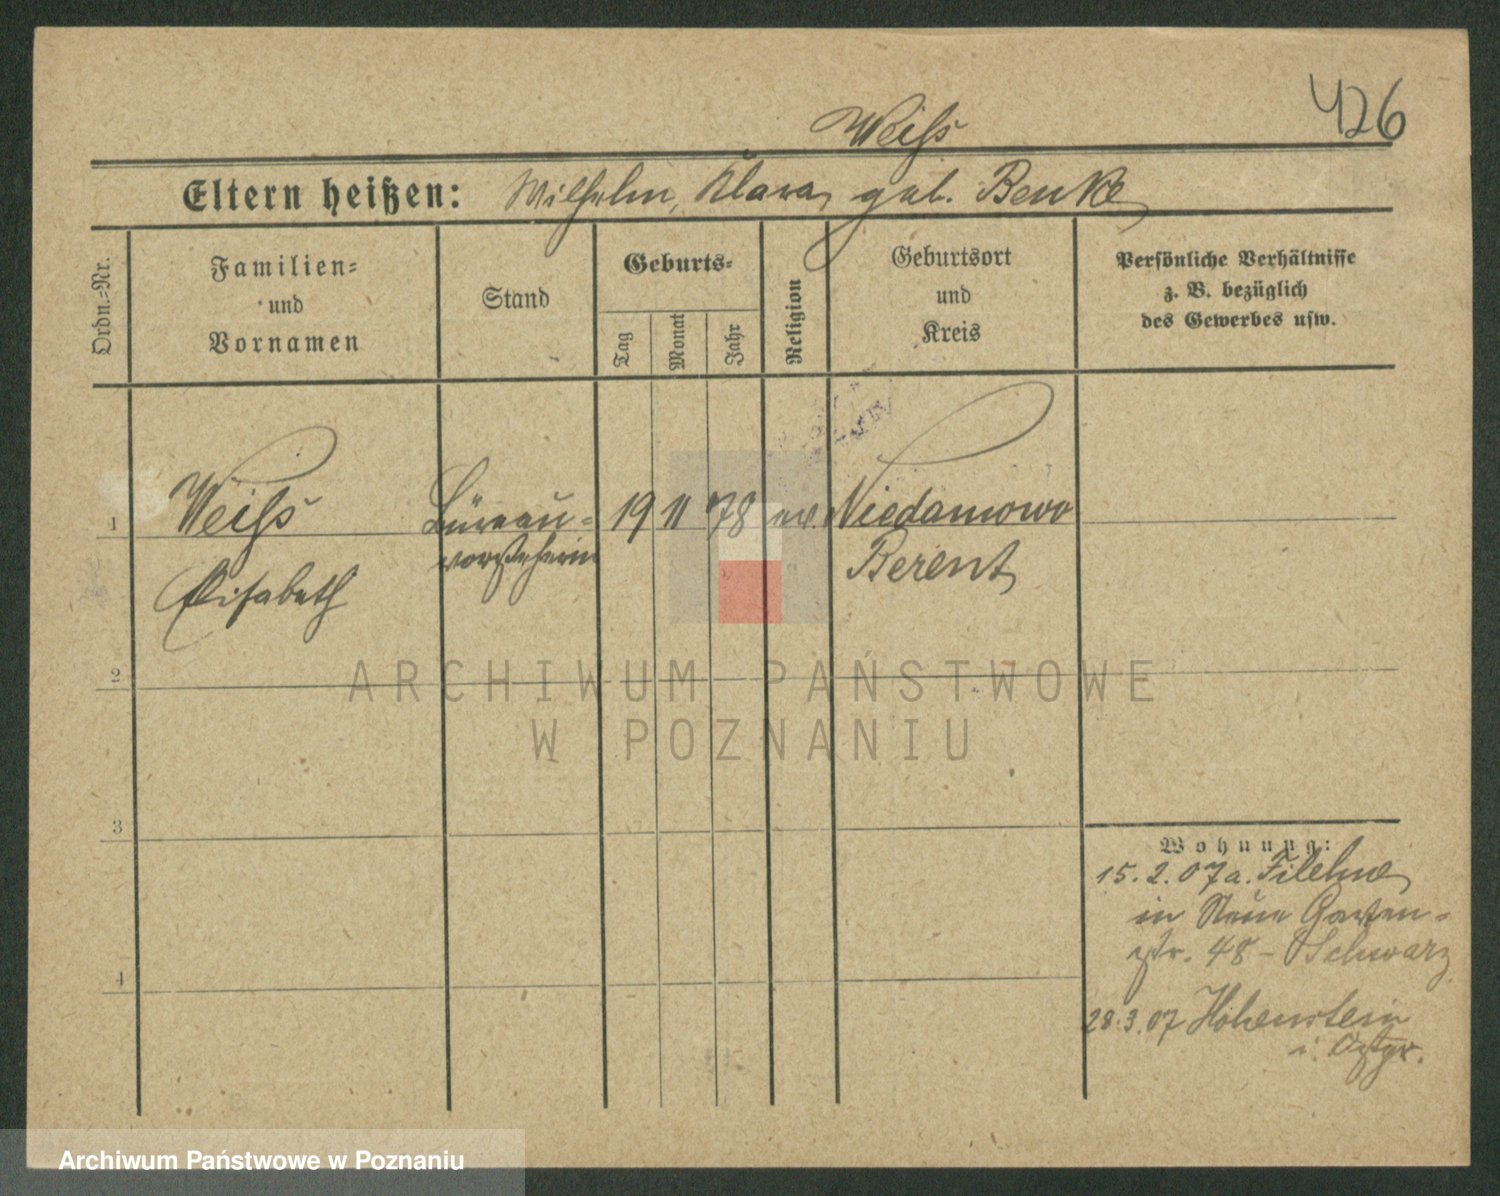 426
Weiſs
Eltern heißen: Wilhelm, Klara, geb. Benke
Ordn.=Nr.
Familien=
und
Vornamen
Stand
Geburts=
Tag
Monat
Jahr
Religion
Geburtsort
und
Kreis
Persönliche Verhältnisse
z. B. bezüglich
des Gewerbes usw.
1
Weiſs
Elisabeth
Büreau=
vorsteherin
19
11
78
ev.
Niedamowo
Berent
2
ARCHIWUM PAŃSTWOWE
W POZNANIU
3
4
Wohnung:
15.2.07 a. Filehne
in Neue Garten=
str. 48 - Schwarz
28.3.07 Hohenstein
i. Ostpr.
Archiwum Państwowe w Poznaniu